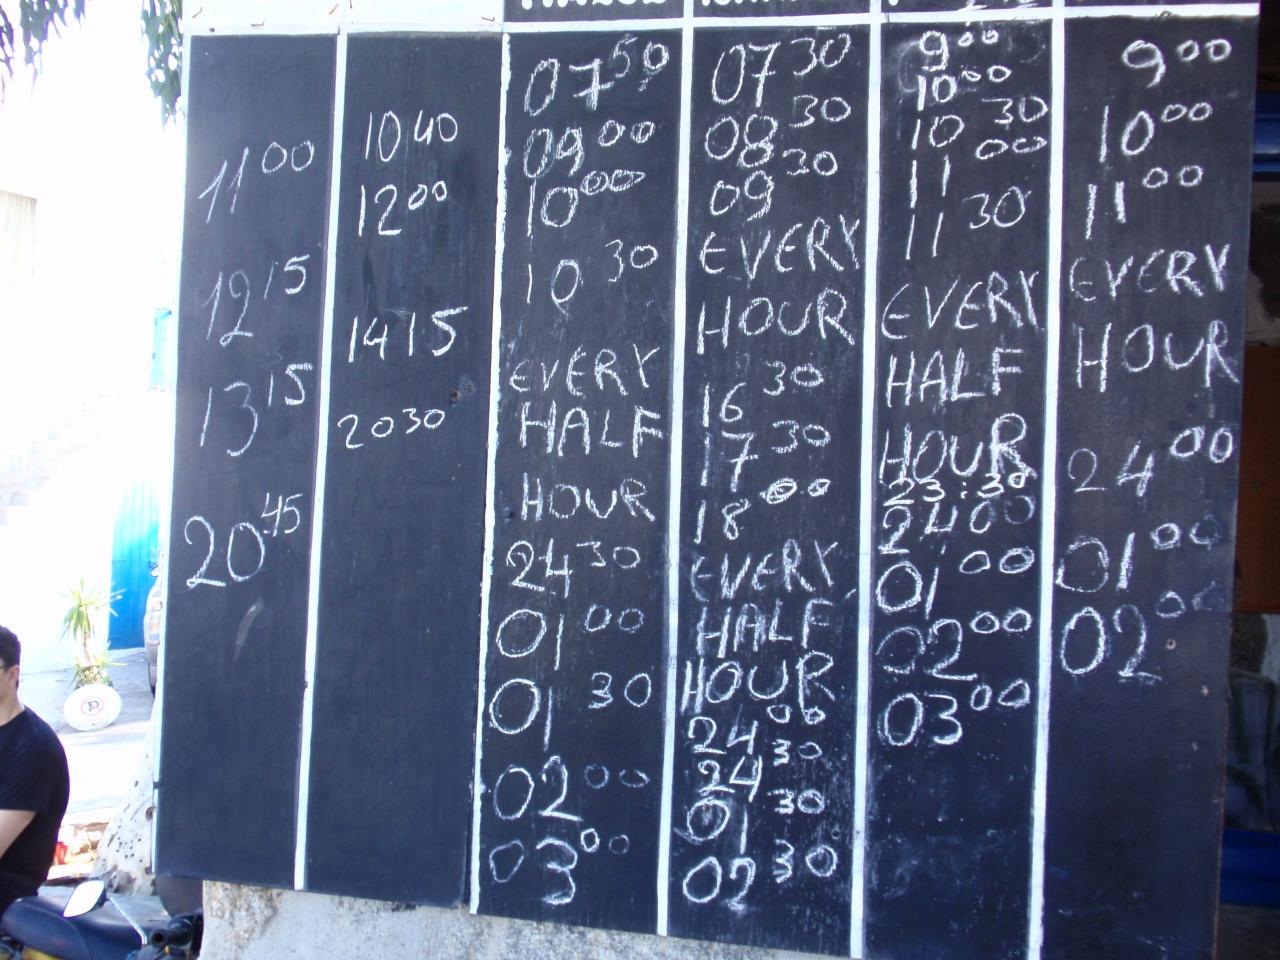 11 00
12 15
13 15
20 45
10 40
12 00
14 15
20 30
07 50
09 00
10 00
10 30
EVERY
HALF
HOUR
24 30
01 00
01 30
02 00
03 00
07 30
08 30
09 30
EVERY
HOUR
16 30
17 30
18 00
EVERY
HALF
HOUR
24 00
24 30
01 30
02 30
9 00
10 00
10 30
11 00
11 30
EVERY
HALF
HOUR
23:30
24 00
01 00
02 00
03 00
9 00
10 00
11 00
EVERY
HOUR
24 00
01 00
02 00